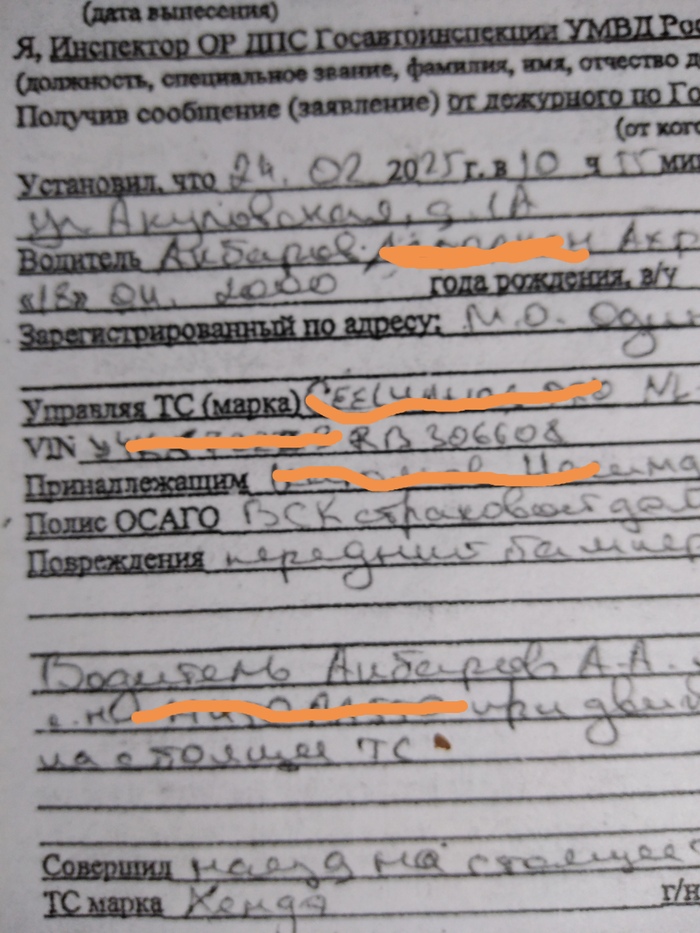 (дата вынесения)
Я, Инспектор ОР ДПС Госавтоинспекции УМВД Рос
(должность, специальное звание, фамилия, имя, отчество д
Получив сообщение (заявление) от дежурного по Го
(от кого
Установил, что 24. 02 2025 г. в 10 ч 55 мин
ул Акуловская, д. 1А
Водитель Акбаров
«18» 04. 2000 года рождения, в/у
Зарегистрированный по адресу: М.О. Один
Управляя ТС (марка)
VIN RB306608
Принадлежащим
Полис ОСАГО ВСК страховой дом
Повреждения передний бампер
Водитель Акбаров А.А.
при движ
на стоящее ТС
Совершил наезд на стоящее
ТС марка Хендэ г/н